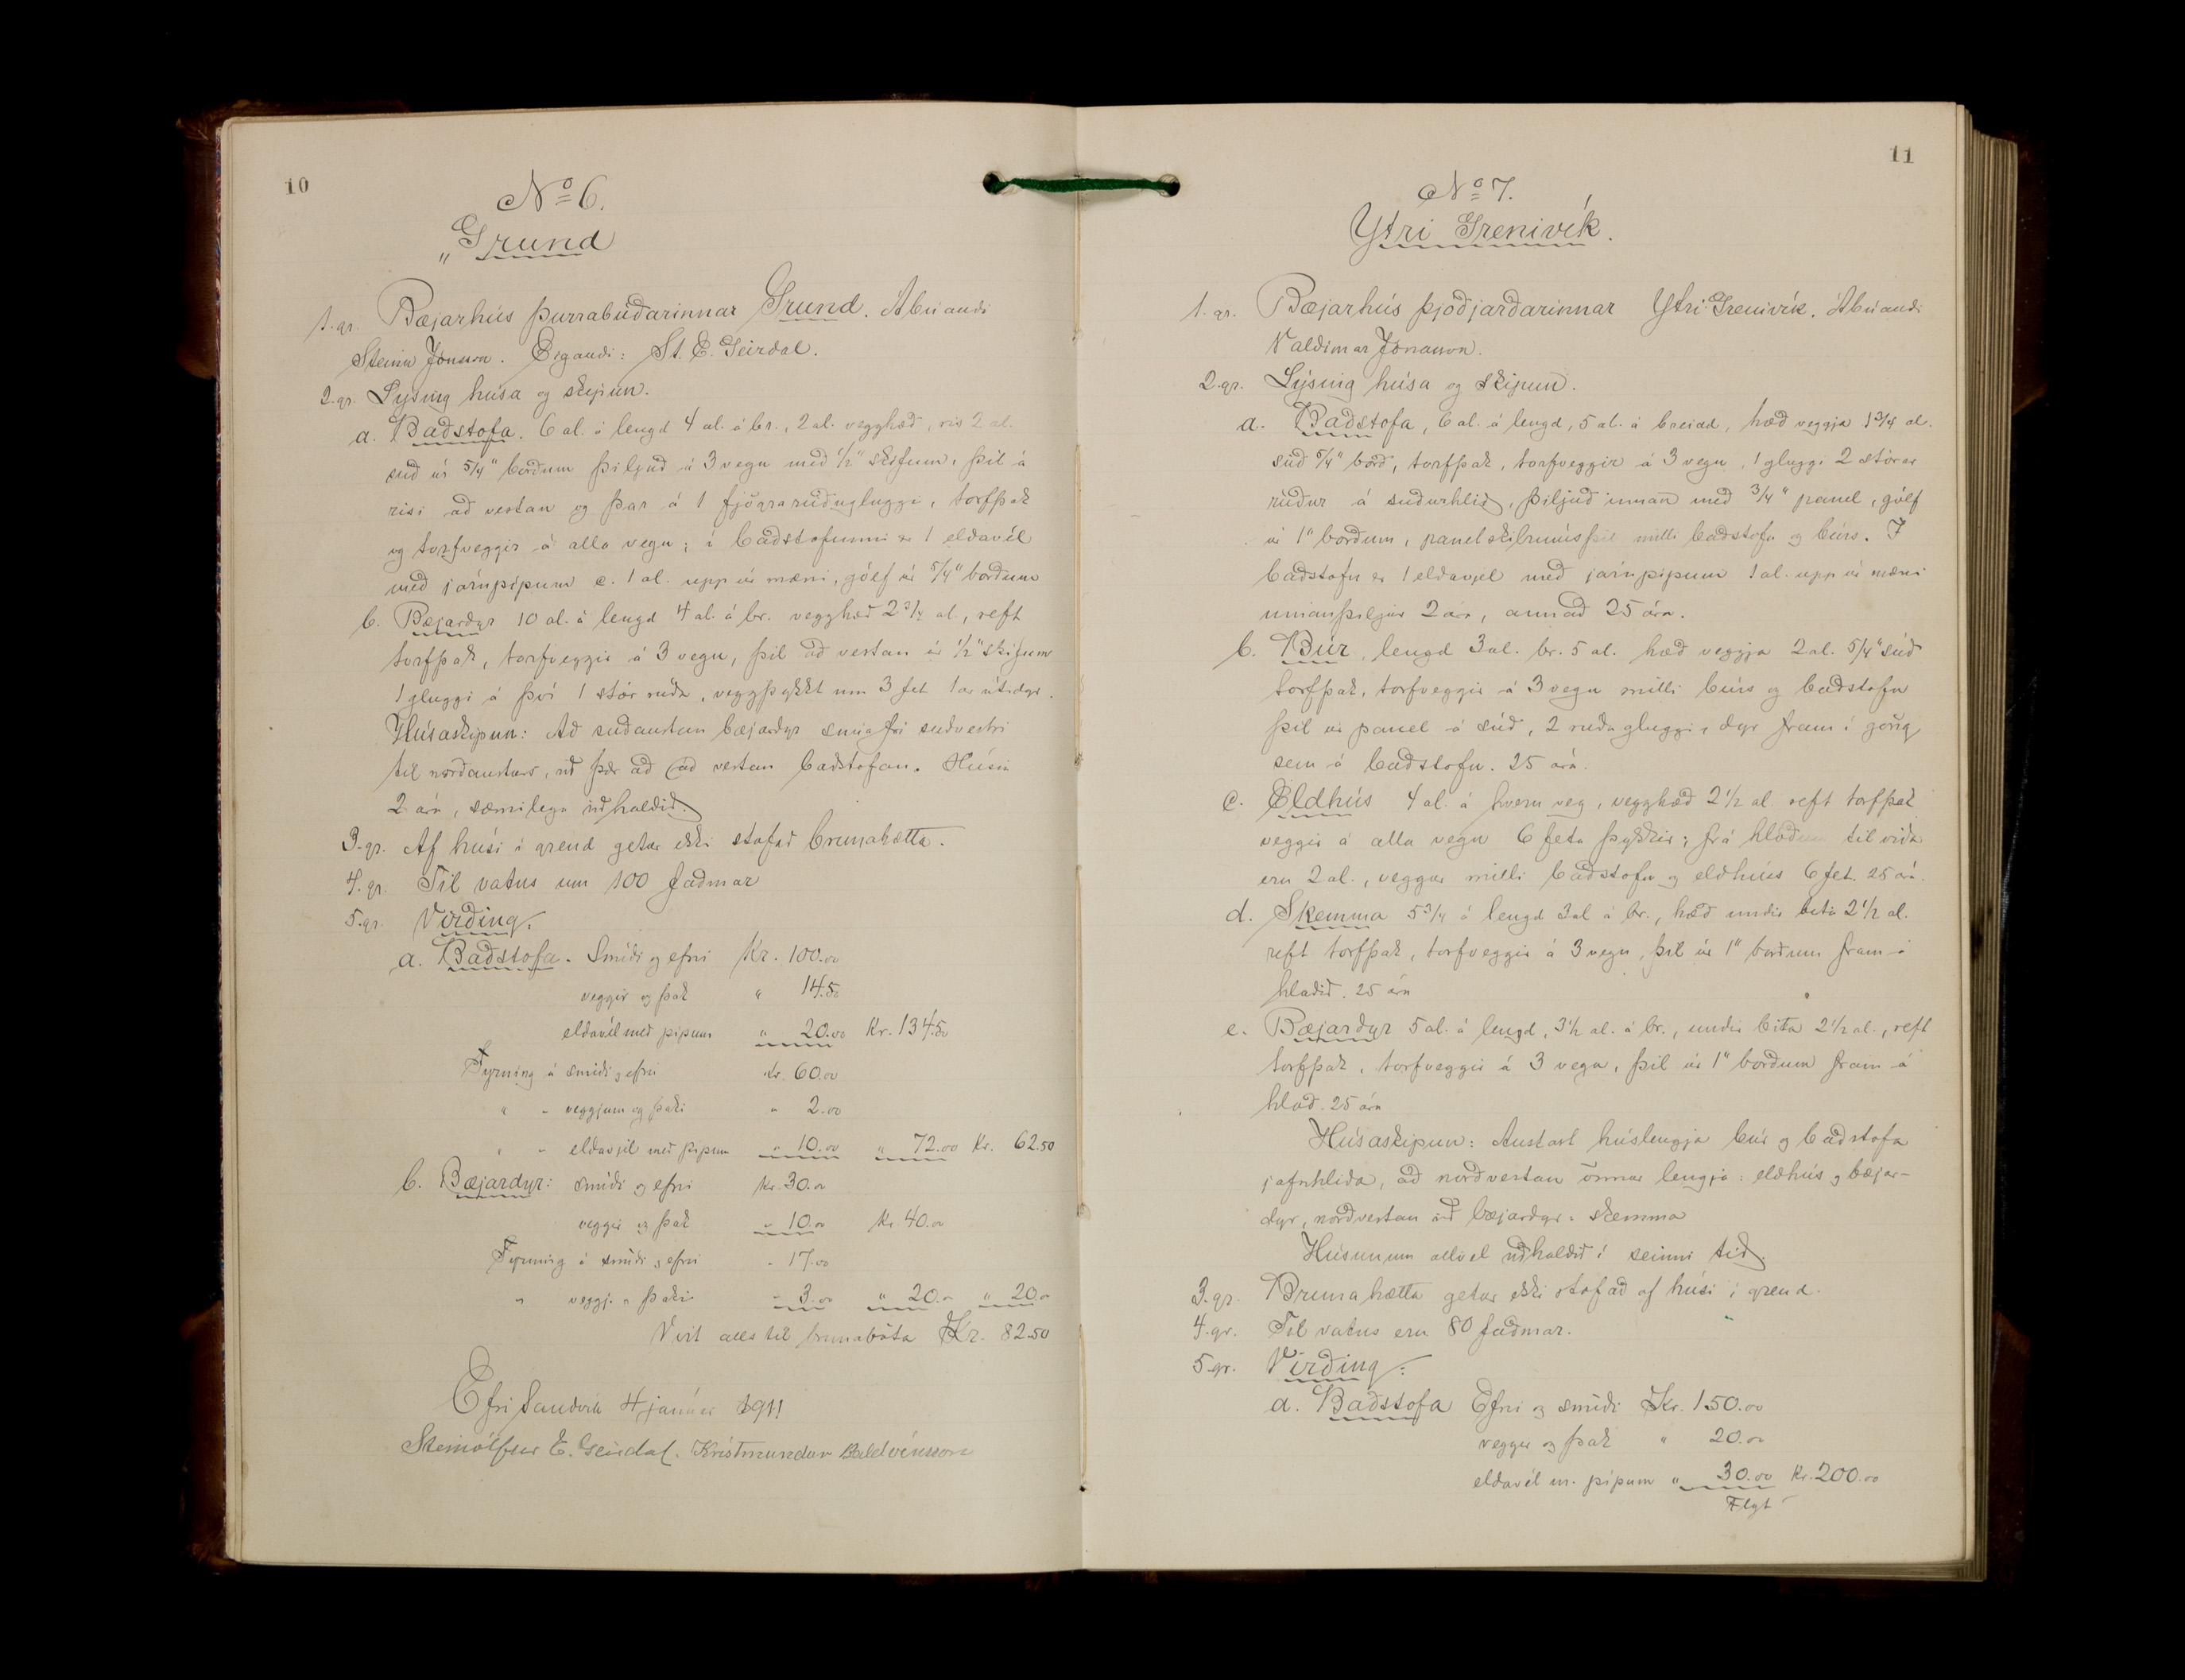 10
Nº 6.
„Grund
1. gr. Bæjarhús þurrabúðarinnar Grund. Ábúandi
Steinn Jónsson. Eigandi: St. E. Geirdal.
2. gr. Lýsing húsa og skipun.
a. Baðstofa. 6 al. á lengd 4 al. á br., 2 al. vegghæð, ris 2 al.
súð úr 5/4" borðum þiljuð á 3 vegu með 1/2" skífum, þil á
risi að vestan og þar á 1 fjögrarúðugluggi, torfþak
og torfveggir á alla vegu; í baðstofunni er 1 eldavél
með járnpípum c. 1 al. upp úr mæni, gólf úr 5/4" borðum
b. Bæjardyr 10 al. á lengd 4 al. á br. vegghæð 2 3/4 al., reft
torfþak, torfveggir á 3 vegu, þil að vestan úr 1/2" skífum
1 gluggi á því 1 stór rúða, veggþykkt um 3 fet 1 ar útidyr.
Húsaskipun: Að suðaustan bæjardyr snúa frá suðvestri
til norðausturs, við þær að að vestan baðstofan. Húsin
2 ára, sæmilega viðhaldið.
3. gr. Af húsi í grend getur ekki stafað brunahætta.
4. gr. Til vatns um 100 faðmar
5. gr. Virðing:
a. Baðstofa. Smíði og efni Kr. 100.00
veggir og þak " 14.50
eldavél með pípum " 20.00 Kr. 134.50
Fyrning á smíði og efni Kr. 60.00
" - veggjum og þaki " 2.00
" - eldavjel með pípum " 10.00 " 72.00 Kr. 62.50
b. Bæjardyr: smíði og efni Kr. 30.00
veggir og þak " 10.00 Kr. 40.00
Fyrning á smíði og efni " 17.00
" veggj. " þaki " 3.00 " 20.00 " 20.00
Virt alls til brunabóta Kr. 82.50
Efri Sandvík 4 janúar 1911
Steinólfur E. Geirdal. Kristmundur Baldvinsson
11
Nº 7.
Ytri Grenivík.
1. gr. Bæjarhús þjóðjarðarinnar Ytri-Grenivík. Ábúandi
Valdimar Jónasson.
2. gr. Lýsing húsa og skipun.
a. Baðstofa, 6 al. á lengd, 5 al. á breidd, hæð veggja 1 3/4 al.
súð 5/4" borð, torfþak, torfveggir á 3 vegu, 1 gluggi 2 stórar
rúður á suðurhlið, þiljuð innan með 3/4" panel, gólf
úr 1" borðum, panelskilrúmsþil milli baðstofu og búrs. Í
baðstofu er 1 eldavjel með járnpípum 1 al. upp úr mæni
innanþiljur 2 ára, annað 25 ára.
b. Búr, lengd 3 al. br. 5 al. hæð veggja 2 al. 5/4" súð
torfþak, torfveggir á 3 vegu milli búrs og baðstofu
þil úr panel á súð, 2 rúðu gluggi, dyr fram í göng
sem á baðstofu. 25 ára.
c. Eldhús 4 al. á hvern veg, vegghæð 2 1/2 al. reft torfþak
veggir á alla vegu 6 feta þykkir; frá hlóðum til viða
eru 2 al., veggur milli baðstofu og eldhús 6 fet. 25 ára.
d. Skemma 5 3/4 á lengd 3 al á br., hæð undir bita 2 1/2 al.
reft torfþak, torfveggir á 3 vegu, þil úr 1" borðum fram á
hlaðið. 25 ára
e. Bæjardyr 5 al. á lengd, 3 1/2 al. á br., undir bita 2 1/2 al., reft
torfþak, torfveggir á 3 vegu, þil úr 1" borðum fram á
hlað. 25 ára
Húsaskipun: Austast húslengja búr og baðstofa
jafnhliða, að norðvestan önnur lengja: eldhús og bæjar-
dyr, norðvestan við bæjardyr: skemma
Húsunum allvel viðhaldið í seinni tíð.
3. gr. Brunahætta getur ekki stafað af húsi í grend.
4. gr. Til vatns eru 80 faðmar.
5. gr. Virðing:
a. Baðstofa Efni og smíði Kr. 150.00
veggir og þak " 20.00
eldavél m. pípum " 30.00 Kr. 200.00
Flyt